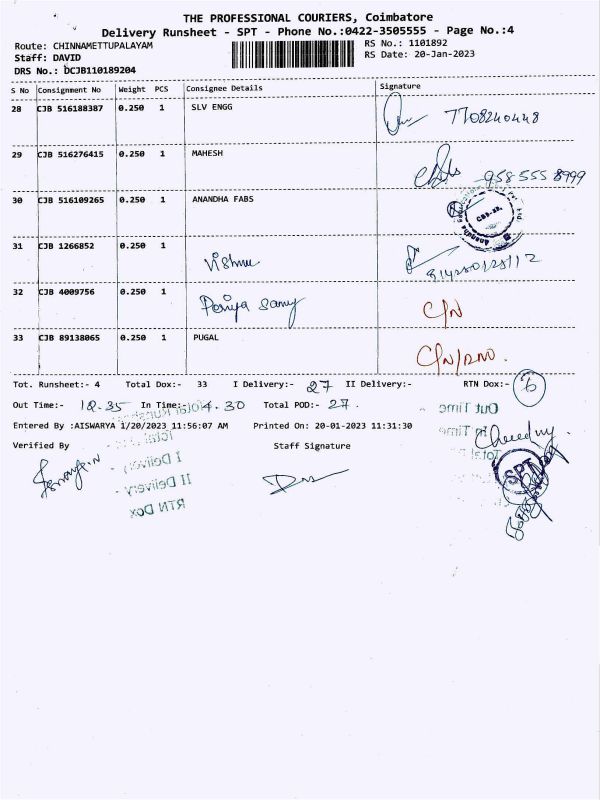 THE PROFESSIONAL COURIERS, Coimbatore
Delivery Runsheet - SPT - Phone No.:0422-3505555 - Page No.:4
Route: CHINNAMETTUPALAYAM
RS No.: 1101892
Staff: DAVID
RS Date: 20-Jan-2023
DRS No.: DCJB110189204
S No Consignment No Weight PCS Consignee Details Signature
28 CJB 516188387 0.250 1 SLV ENGG 7708240448
29 CJB 516276415 0.250 1 MAHESH 958 555 8999
30 CJB 516109265 0.250 1 ANANDHA FABS
31 CJB 1266852 0.250 1 Vishnu
32 CJB 4009756 0.250 1 Periya Samy C/N
33 CJB 89138065 0.250 1 PUGAL C/N/
Tot. Runsheet:- 4 Total Dox:- 33 I Delivery:- 27 II Delivery:- RTN Dox:- 6
Out Time:- 12.35 In Time:- 4.30 Total POD:- 27.
Out Time
Entered By :AISWARYA 1/20/2023 11:56:07 AM Printed On: 20-01-2023 11:31:30
In Time
Verified By Staff Signature
I Delivery -
SPT
II Delivery -
RTN Dox